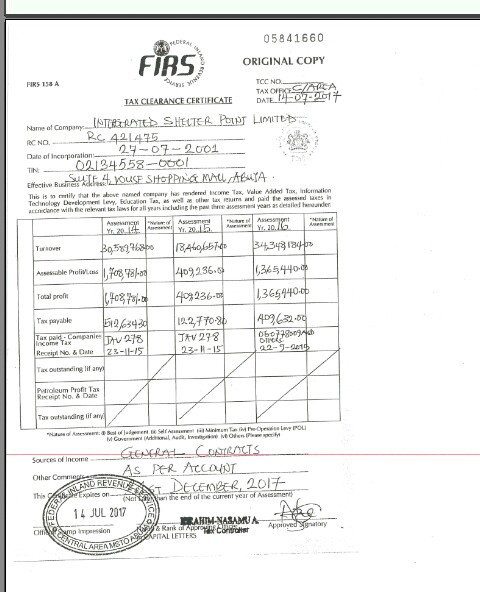 05841660
FEDERAL INLAND REVENUE SERVICE
FIRS
ORIGINAL COPY
FIRS 158 A
TCC NO.
TAX OFFICE C/AREA
DATE 14-07-2017
TAX CLEARANCE CERTIFICATE
Name of Company: INTERGRATED SHELTER POINT LIMITED
RC NO. RC 421475
Date of Incorporation: 27-07-2001
TIN: 02134558-0001
Effective Business Address: SUITE 4, VOUSE SHOPPING MALL, ABUJA.
This is to certify that the above named company has rendered Income Tax, Value Added Tax, Information
Technology Development Levy, Education Tax, as well as other tax returns and paid the assessed taxes in
accordance with the relevant tax laws for all years including the past three assessment years as detailed hereunder:
Assessment Yr. 2014 *Nature of Assessment Assessment Yr. 2015 *Nature of Assessment Assessment Yr. 2016 *Nature of Assessment
Turnover 30,589,968.00 18,460,657.00 34,348,184.00
Assessable Profit/Loss 1,708,781.00 409,236.00 1,365,440.00
Total profit 1,708,781.00 409,236.00 1,365,440.00
Tax payable 512,634.30 122,770.80 409,632.00
Tax paid - Companies Income Tax JAV 278 JAV 278 OTHERS
Receipt No. & Date 23-11-15 23-11-15
Tax outstanding (if any)
Petroleum Profit Tax
Receipt No. & Date
Tax outstanding (if any)
*Nature of Assessment: (i) Best of Judgement (ii) Self Assessment (iii) Minimum Tax (iv) Pre-Operation Levy (POL)
(v) Government (Additional, Audit, Investigation) (vi) Others (Please specify)
Sources of Income GENERAL CONTRACTS
Other Comments AS PER ACCOUNT
This Certificate Expires on 31ST DECEMBER, 2017
(Not later than the end of the current year of Assessment)
FEDERAL INLAND REVENUE SERVICE
14 JUL 2017
CENTRAL AREA MSTO ABUJA
IBRAHIM-NASAMU A.
Tax Controller
Official Stamp Impression Name & Rank of Approving Officer Approved Signatory
CAPITAL LETTERS